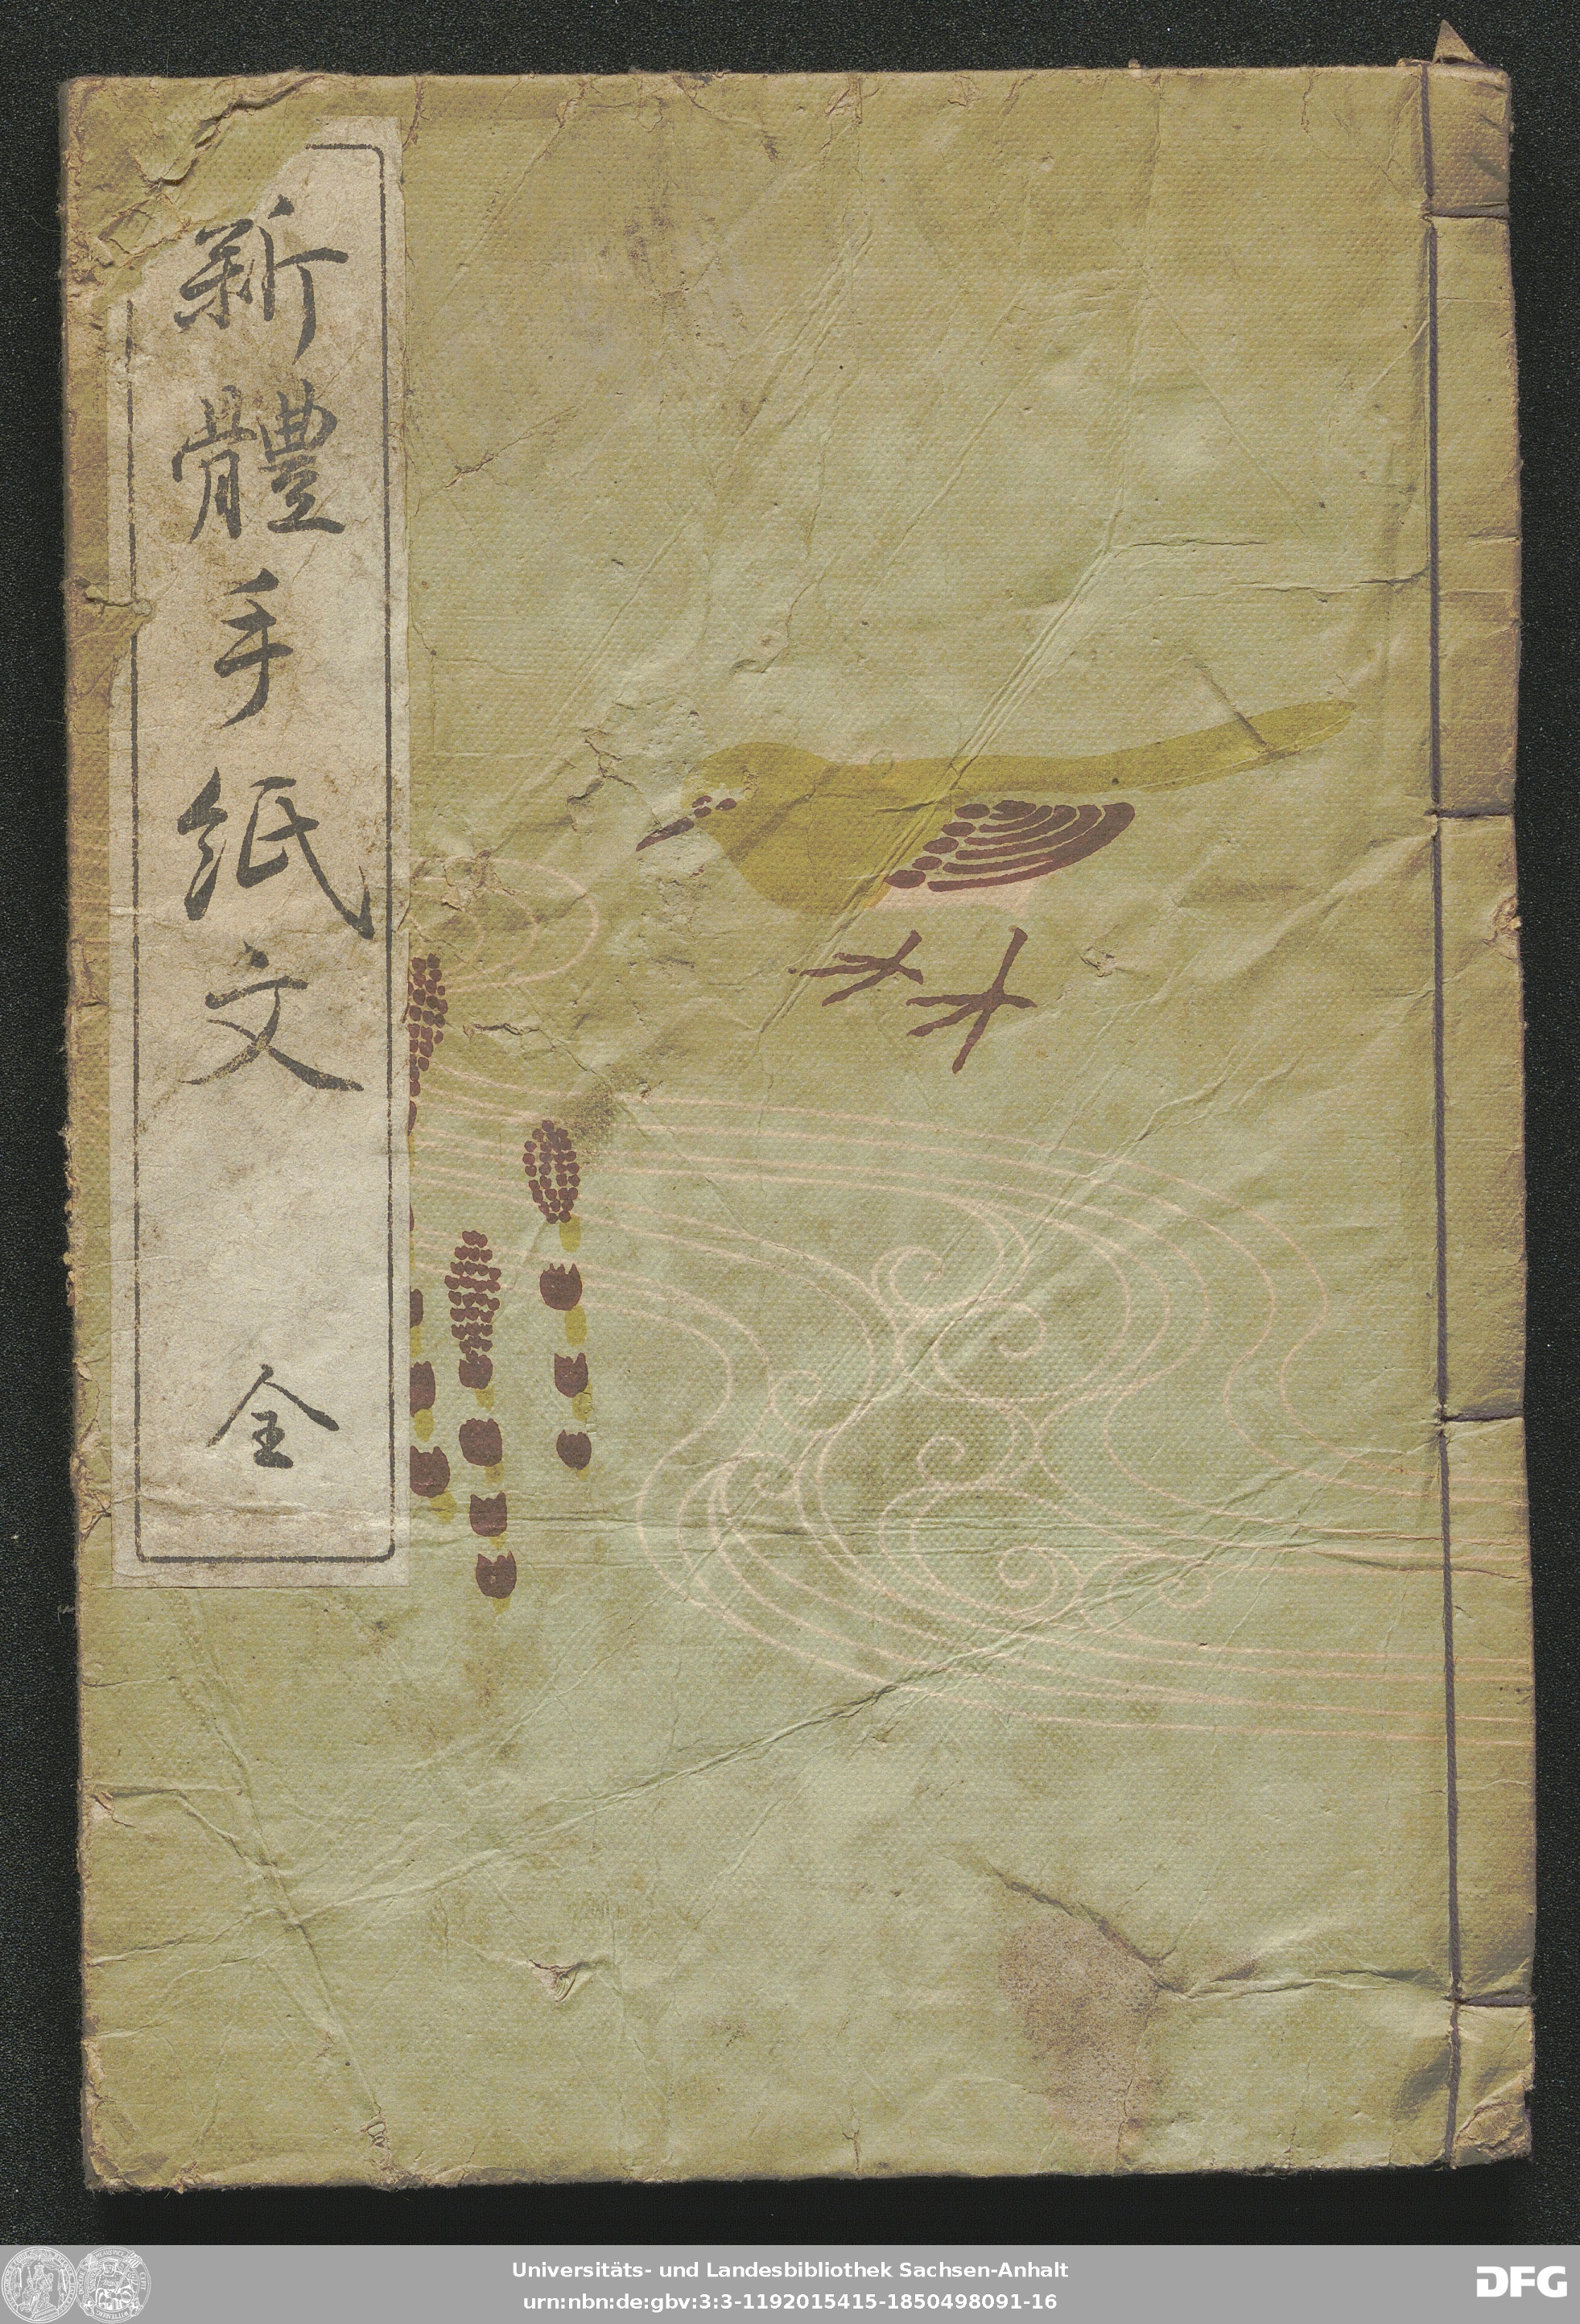 新體手紙文 全
Universitäts- und Landesbibliothek Sachsen-Anhalt
urn:nbn:de:gbv:3:3-1192015415-1850498091-16
DFG